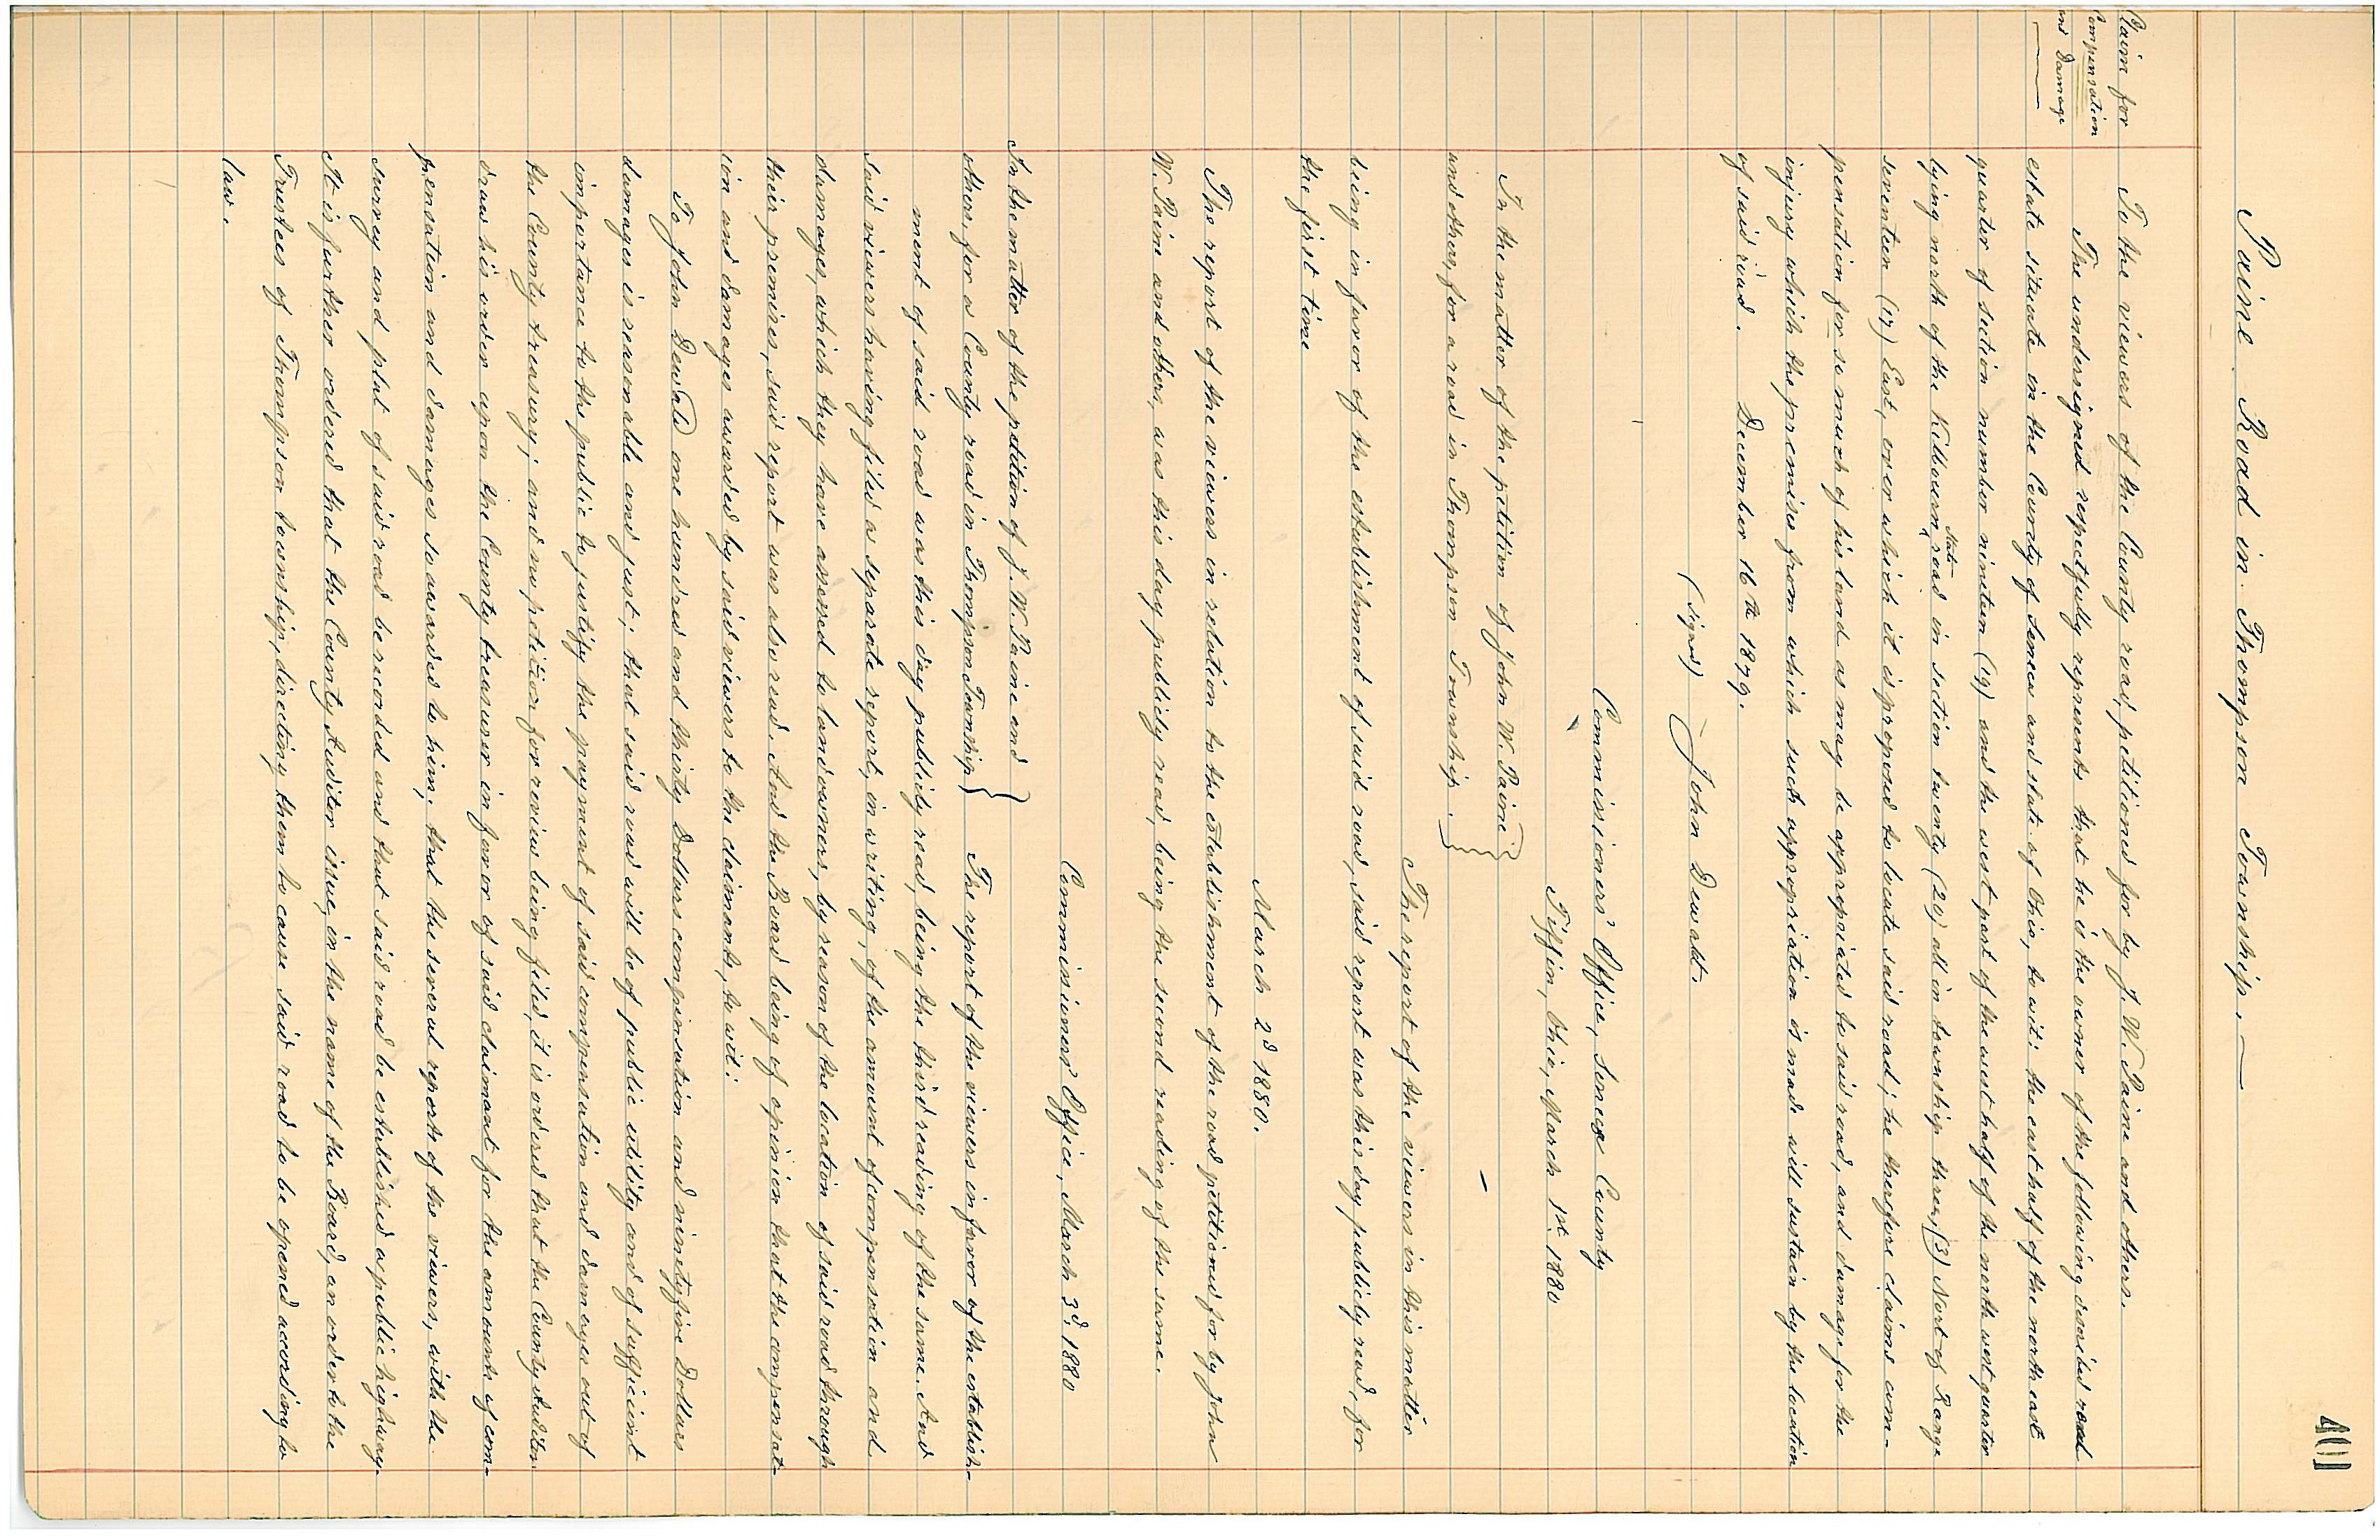 401
Paine Road in Thompson Township.—
Claim for
Compensation
and Damage
To the viewers of the County road, petitioned for by J. W. Paine and others.
The undersigned respectfully represents that he is the owner of the following described real
estate situate in the County of Seneca and state of Ohio, to wit: the east half of the north east
quarter of section number ninteen (19) and the west part of the west half of the north west quarter
lying north of the Kilbourn State road in section twenty (20) all in township three, (3) Nort of Range
seventeen (17) East, over which it is proposed to locate said road; he therefore claims com-
pensation for so much of his land as may be appropriated to said road, and damage for the
injury which the premises from which such appropriation is made will sustain by the location
of said road. December 16th 1879.
(signed) John Dewalt.
Commissioners' Office, Seneca County
Tiffin, Ohio, March 1st 1880
In the matter of the petition of John W. Paine
and others, for a road in Thompson Township.
The report of the viewers in this matter
being in favor of the establishment of said road, said report was this day publicly read, for
the first time
March 2d 1880.
The report of the viewers in relation to the establishment of the road petitioned for by John
W. Paine and others, was this day publicly read, being the second reading of the same.
Commissioners' Office, March 3d, 1880
In the matter of the petition of J. W. Paine and
others, for a County road in Thompson Township
The report of the viewers in favor of the establish-
ment of said road was this day publicly read, being the third reading of the same. And
said viewers having filed a separate report, in writing, of the amount of compensation and
damages, which they have assessed to landowners, by reason of the location of said road through
their premises, said report was also read. And the Board being of opinion that the compensat-
ion and damages awarded by said viewers to the claimants, to wit:
To John Dewald one hundred and thirty Dollars compensation and ninetyfive Dollars
damages is reasonable and just; that said road will be of public utility and of sufficient
importance to the public to justify the payment of said compensation and damages out of
the County treasury; and no petition for review being filed, it is ordered that the County Auditor
draw his order upon the County treasurer in favor of said claimant for the amounts of com-
pensation and damages so awarded to him; that the several reports of the viewers, with the
survey and plat of said road be recorded and that said road be established a public highway.
It is further ordered that the County Auditor issue, in the name of the Board, an order to the
Trustees of Thompson township, directing them to cause said road to be opened according to
law.